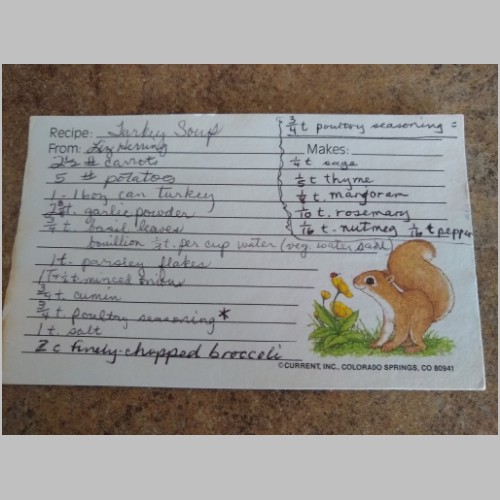 Recipe: Turkey Soup
From: Liz Herring
2 1/2 # carrot
5 # potatoes
1 - 16 oz can turkey
t. garlic powder
3/4 t. basil leaves
bouillion 1/2 t. per cup water (veg. water same)
1 t. parsley flakes
1 T + 1/2 t. minced onion
3/4 t. cumin
3/4 t. poultry seasoning *
1 t. salt
2 c finely-chopped broccoli
3/4 t poultry seasoning =
Makes:
1/4 t sage
1/5 t thyme
t. marjoram
1/10 t. rosemary
1/16 t. nutmeg 1/16 t pepper
©CURRENT, INC., COLORADO SPRINGS, CO 80941